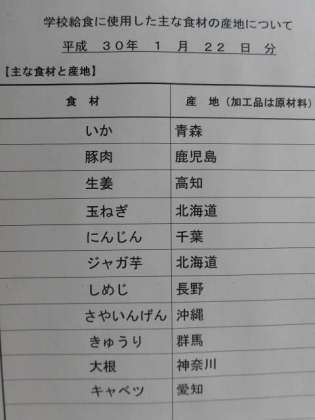 学校給食に使用した主な食材の産地について
平成 30年 1 月 22 日 分
【主な食材と産地】
食 材 産 地（加工品は原材料）
いか 青森
豚肉 鹿児島
生姜 高知
玉ねぎ 北海道
にんじん 千葉
ジャガ芋 北海道
しめじ 長野
さやいんげん 沖縄
きゅうり 群馬
大根 神奈川
キャベツ 愛知